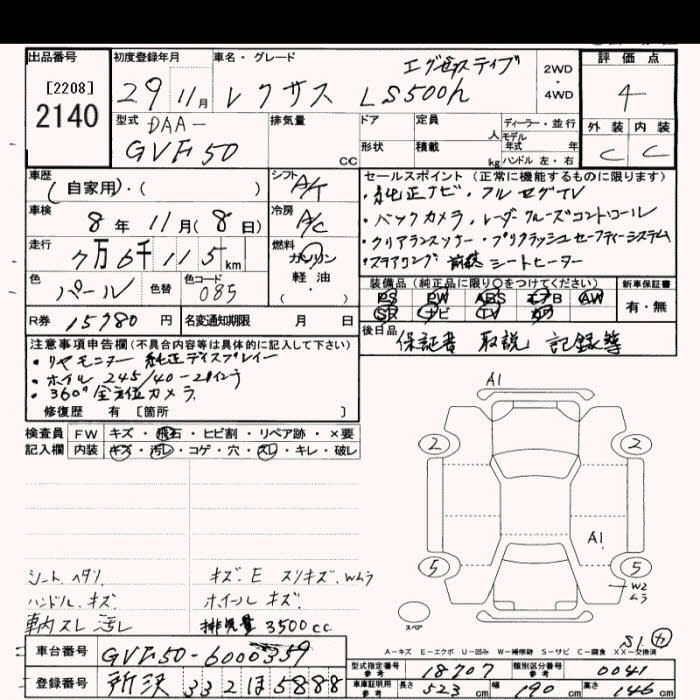 出品番号 初度登録年月 車名・グレード 評価点
[2208] 29 11月 レクサス エグゼクティブ LS500h 2WD・4WD 4
2140
型式 DAA- GVF50 排気量 CC ドア 定員 人 ディーラー・並行
形状 積載 kg モデル年式 年 ハンドル 左・右
外装 内装
C C
車歴 (自家用)・( ) シフト A/T
セールスポイント(正常に機能するものに限ります)
・純正ナビ・フルセグTV
車検 8年11月(8日) 冷房 A/C
・バックカメラ・レーダークルーズコントロール
走行 7万6千115km 燃料 ガソリン 軽油 ・( )
・クリアランスソナー・プリクラッシュセーフティーシステム
・ステアリング 前後シートヒーター
色 パール 色替 色コード 085
装備品(純正品に限り○をつけてください) 新車保証書
PS PW ABS エアB AW 有・無
SR ナビ TV
R券 15980円 名変通知期限 月 日
後日品 保証書 取説 記録簿
注意事項申告欄(不具合内容等は具体的に記入して下さい)
・リヤモニター 純正ディスプレイー
・ホイル 245/40-20インチ
・360°全方位カメラ
修復歴 有 [箇所 ]
検査員 FW キズ・飛石・ヒビ割・リペア跡・×要
記入欄 内装 キズ・汚レ・コゲ・穴・スレ・キレ・破レ
A1
2 2
A1
5 5
W2
ムラ
スペア
シート ヘタリ キズ.E スリキズ.Wムラ
ハンドル キズ ホイール キズ
車内スレ汚レ 排気量 3500cc
S1 カ
A-キズ E-エクボ U-凹み W-補修跡 S-サビ C-腐食 XX-交換済
車台番号 GVF50-6000359
型式指定番号 参考 18707 類別区分番号 参考 0041
登録番号 所沢 332 ほ 5888
車庫証明用 参考 長さ 523cm 幅 190cm 高さ 146cm